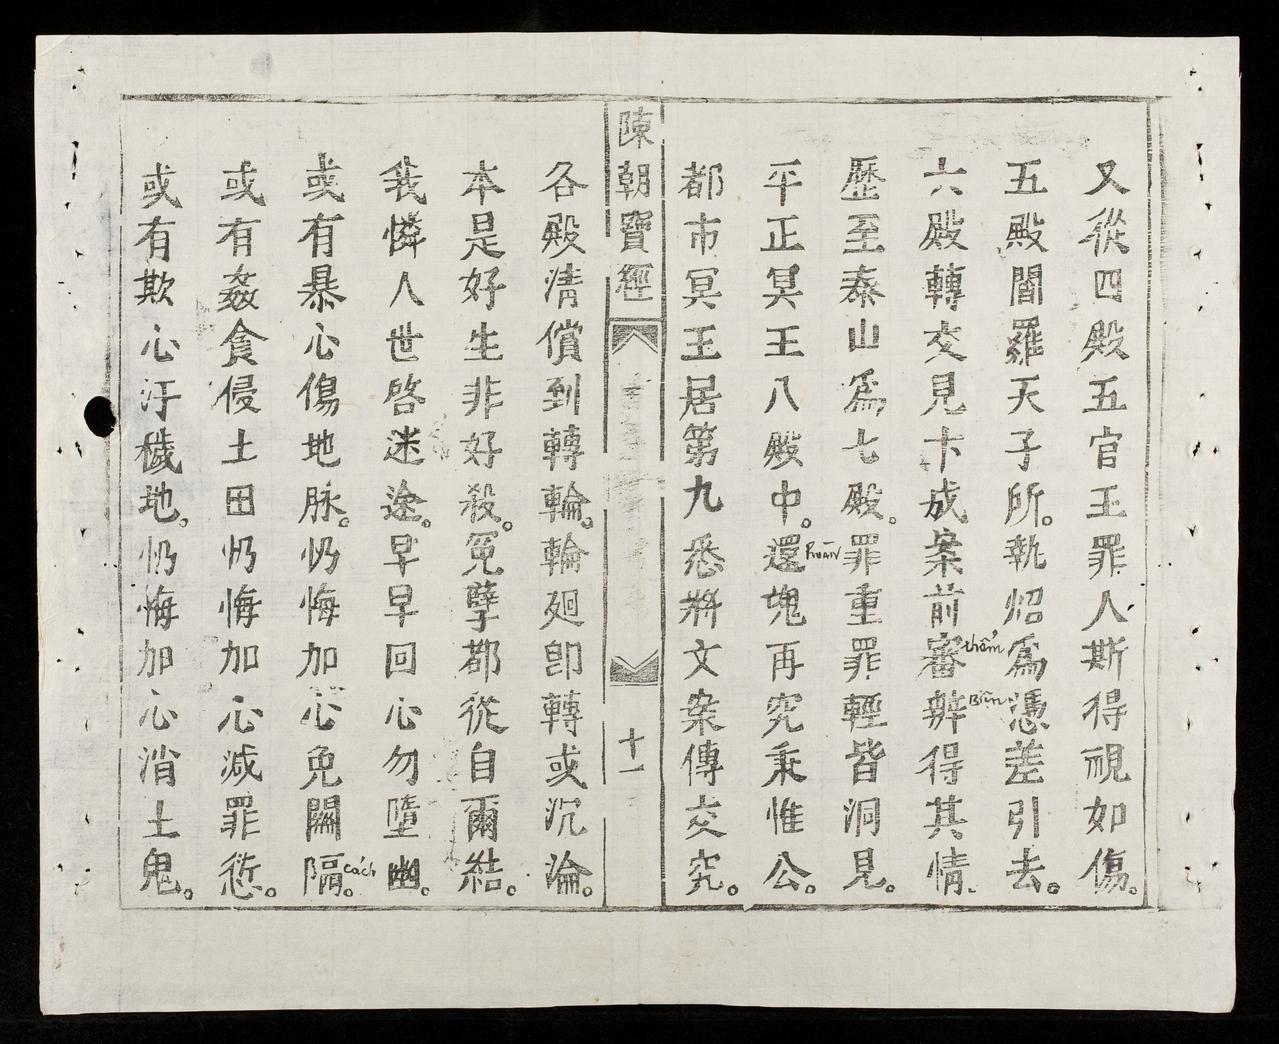 又從四殿五官王罪人斯得視如傷。
五殿閻羅天子所。執炤爲憑差引去。
六殿轉交見卞成案前審辨得其情.
thẩm
Biện
歷至泰山爲七殿。罪重罪輕皆洞見。
平正冥王八殿中。還魂再究秉惟公。
hoàn
都市冥王居第九悉將文案傳交究。
陳朝寶經
十一
各殿清償到轉輪。輪廻即轉或沉淪。
本是好生非好殺。冤孽都從自爾結。
我憐人世啓迷途。早早回心勿墮幽。
或有暴心傷地脉。忛悔加心免關隔。
cách
或有姦貪侵土田忛悔加心減罪愆。
或有欺心汙穢地。忛悔加心消土鬼。